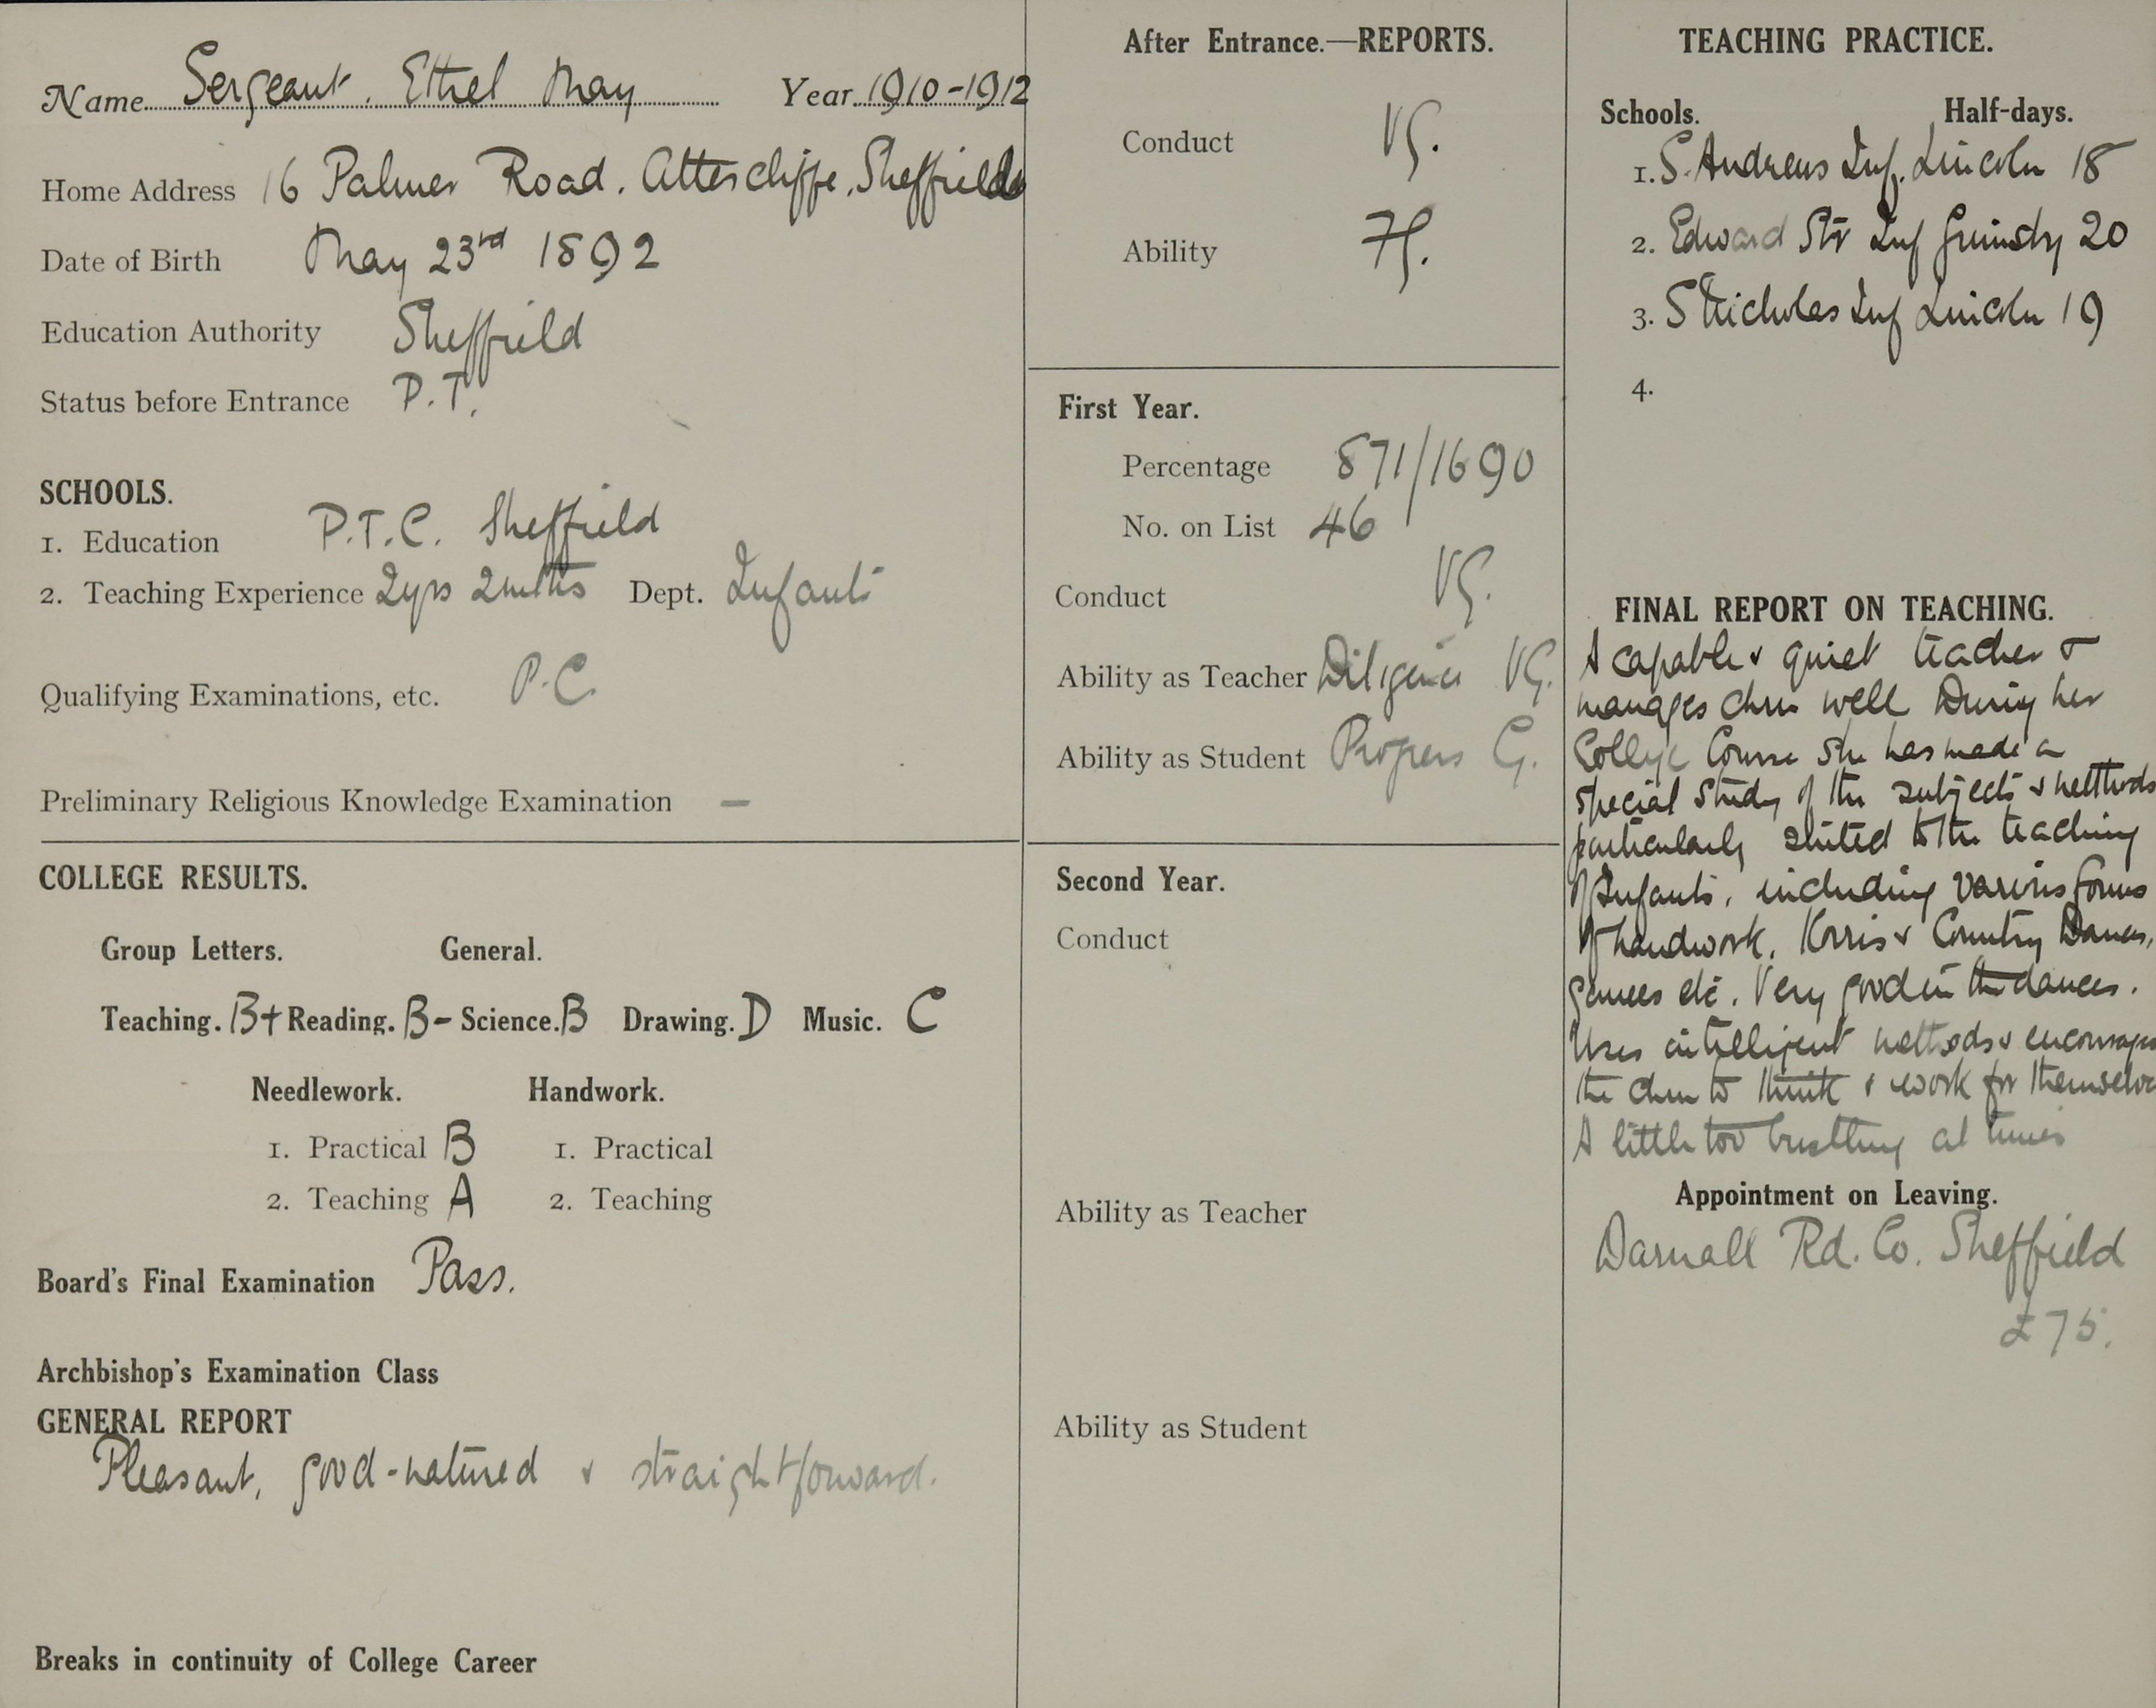 Name Sergeant. Ethel May Year 1910-1912
Home Address 16 Palmer Road. Attercliffe, Sheffield
Date of Birth May 23rd 1892
Education Authority Sheffield
Status before Entrance P.T.
SCHOOLS.
1. Education P.T.C. Sheffield
2. Teaching Experience 2yrs 2mths Dept. Infants
Qualifying Examinations, etc. P.C.
Preliminary Religious Knowledge Examination —
COLLEGE RESULTS.
Group Letters. General.
Teaching. B+ Reading. B- Science. B Drawing. D Music. C
Needlework. Handwork.
1. Practical B 1. Practical
2. Teaching A 2. Teaching
Board's Final Examination Pass.
Archbishop's Examination Class
GENERAL REPORT
Pleasant, good-natured & straightforward.
Breaks in continuity of College Career
After Entrance.—REPORTS.
Conduct VG.
Ability FG.
First Year.
Percentage 871/1690
No. on List 46
Conduct VG.
Ability as Teacher Diligence VG.
Ability as Student Progress G.
Second Year.
Conduct
Ability as Teacher
Ability as Student
TEACHING PRACTICE.
Schools. Half-days.
1. S. Andrews Inf. Lincoln 18
2. Edward Str Inf Grimsby 20
3. S Nicholas Inf Lincoln 19
4.
FINAL REPORT ON TEACHING.
A capable & quiet teacher &
manages chn well During her
College Course she has made a
special study of the subjects & methods
particularly suited to the teaching
of Infants, including various forms
of handwork, Morris & Country Dances,
games etc. Very good in the dances.
Uses intelligent methods & encourages
the chn to think & work for themselves
A little too bustling at times
Appointment on Leaving.
Darnall Rd. Co. Sheffield
£75.